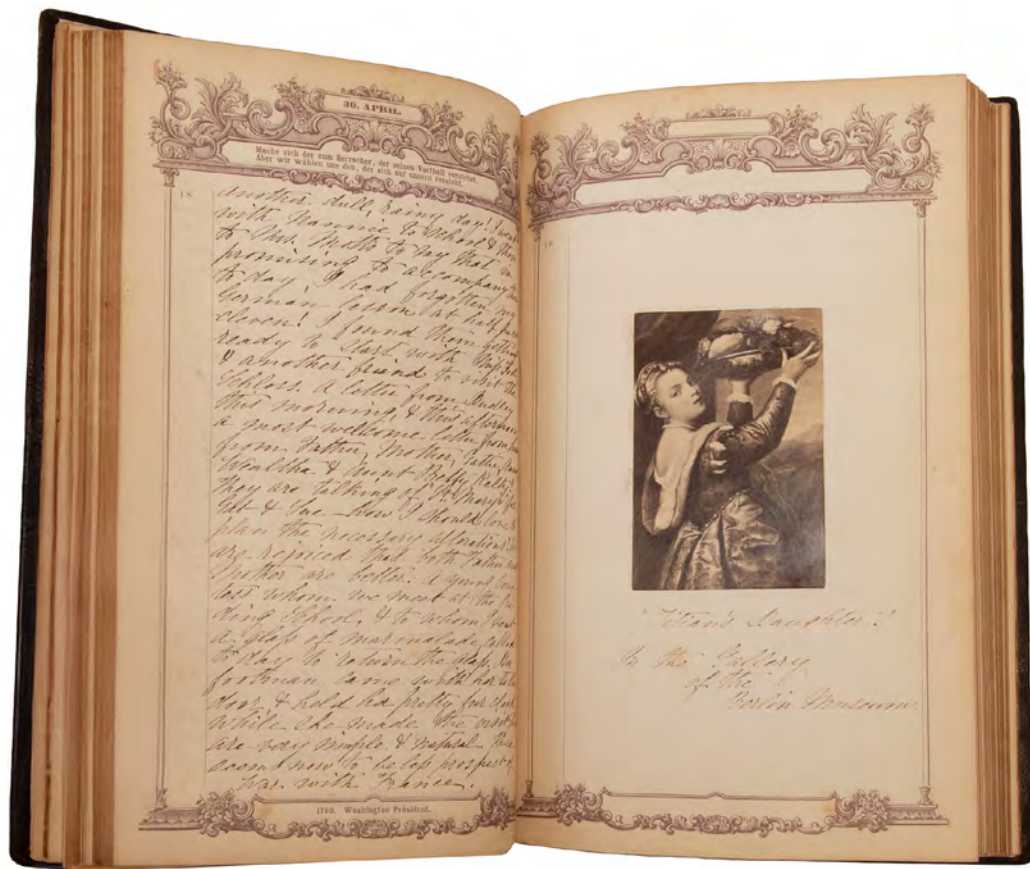 30. APRIL.
Mache sich der zum Herrscher, der seinen Vortheil verstehet,
Aber wir wählen uns den, der sich auf unsern versteht.
18
Another dull, rainy day! I went
with Nannie to school & then
to Mrs. Motts to say that in
promising to accompany them
to day I had forgotten my
German lesson at half past
eleven! I found them getting
ready to start with Miss
& another friend to visit the
Schloss. A letter from Dudley
this morning, & this afternoon
a most welcome letter from
from Father, Mother,
Wealtha & Aunt Betty Kelly.
They are talking of St. Mary's for
& Sue – How I should love to
plan the necessary alterations!
are rejoiced that both Father and
Mother are better. A young
whom we meet at the
School, & to whom I sent
a glass of marmalade, called
to day to return the glass. Her
footman came with her to the
door & held her pretty fur cloak
while she made the visit.
are very simple & natural. There
seems now to be less prospect of
War with France.
1789. Washington Präsident.
18
"Titian's Daughter."
In the Gallery
of the
Berlin Museum.